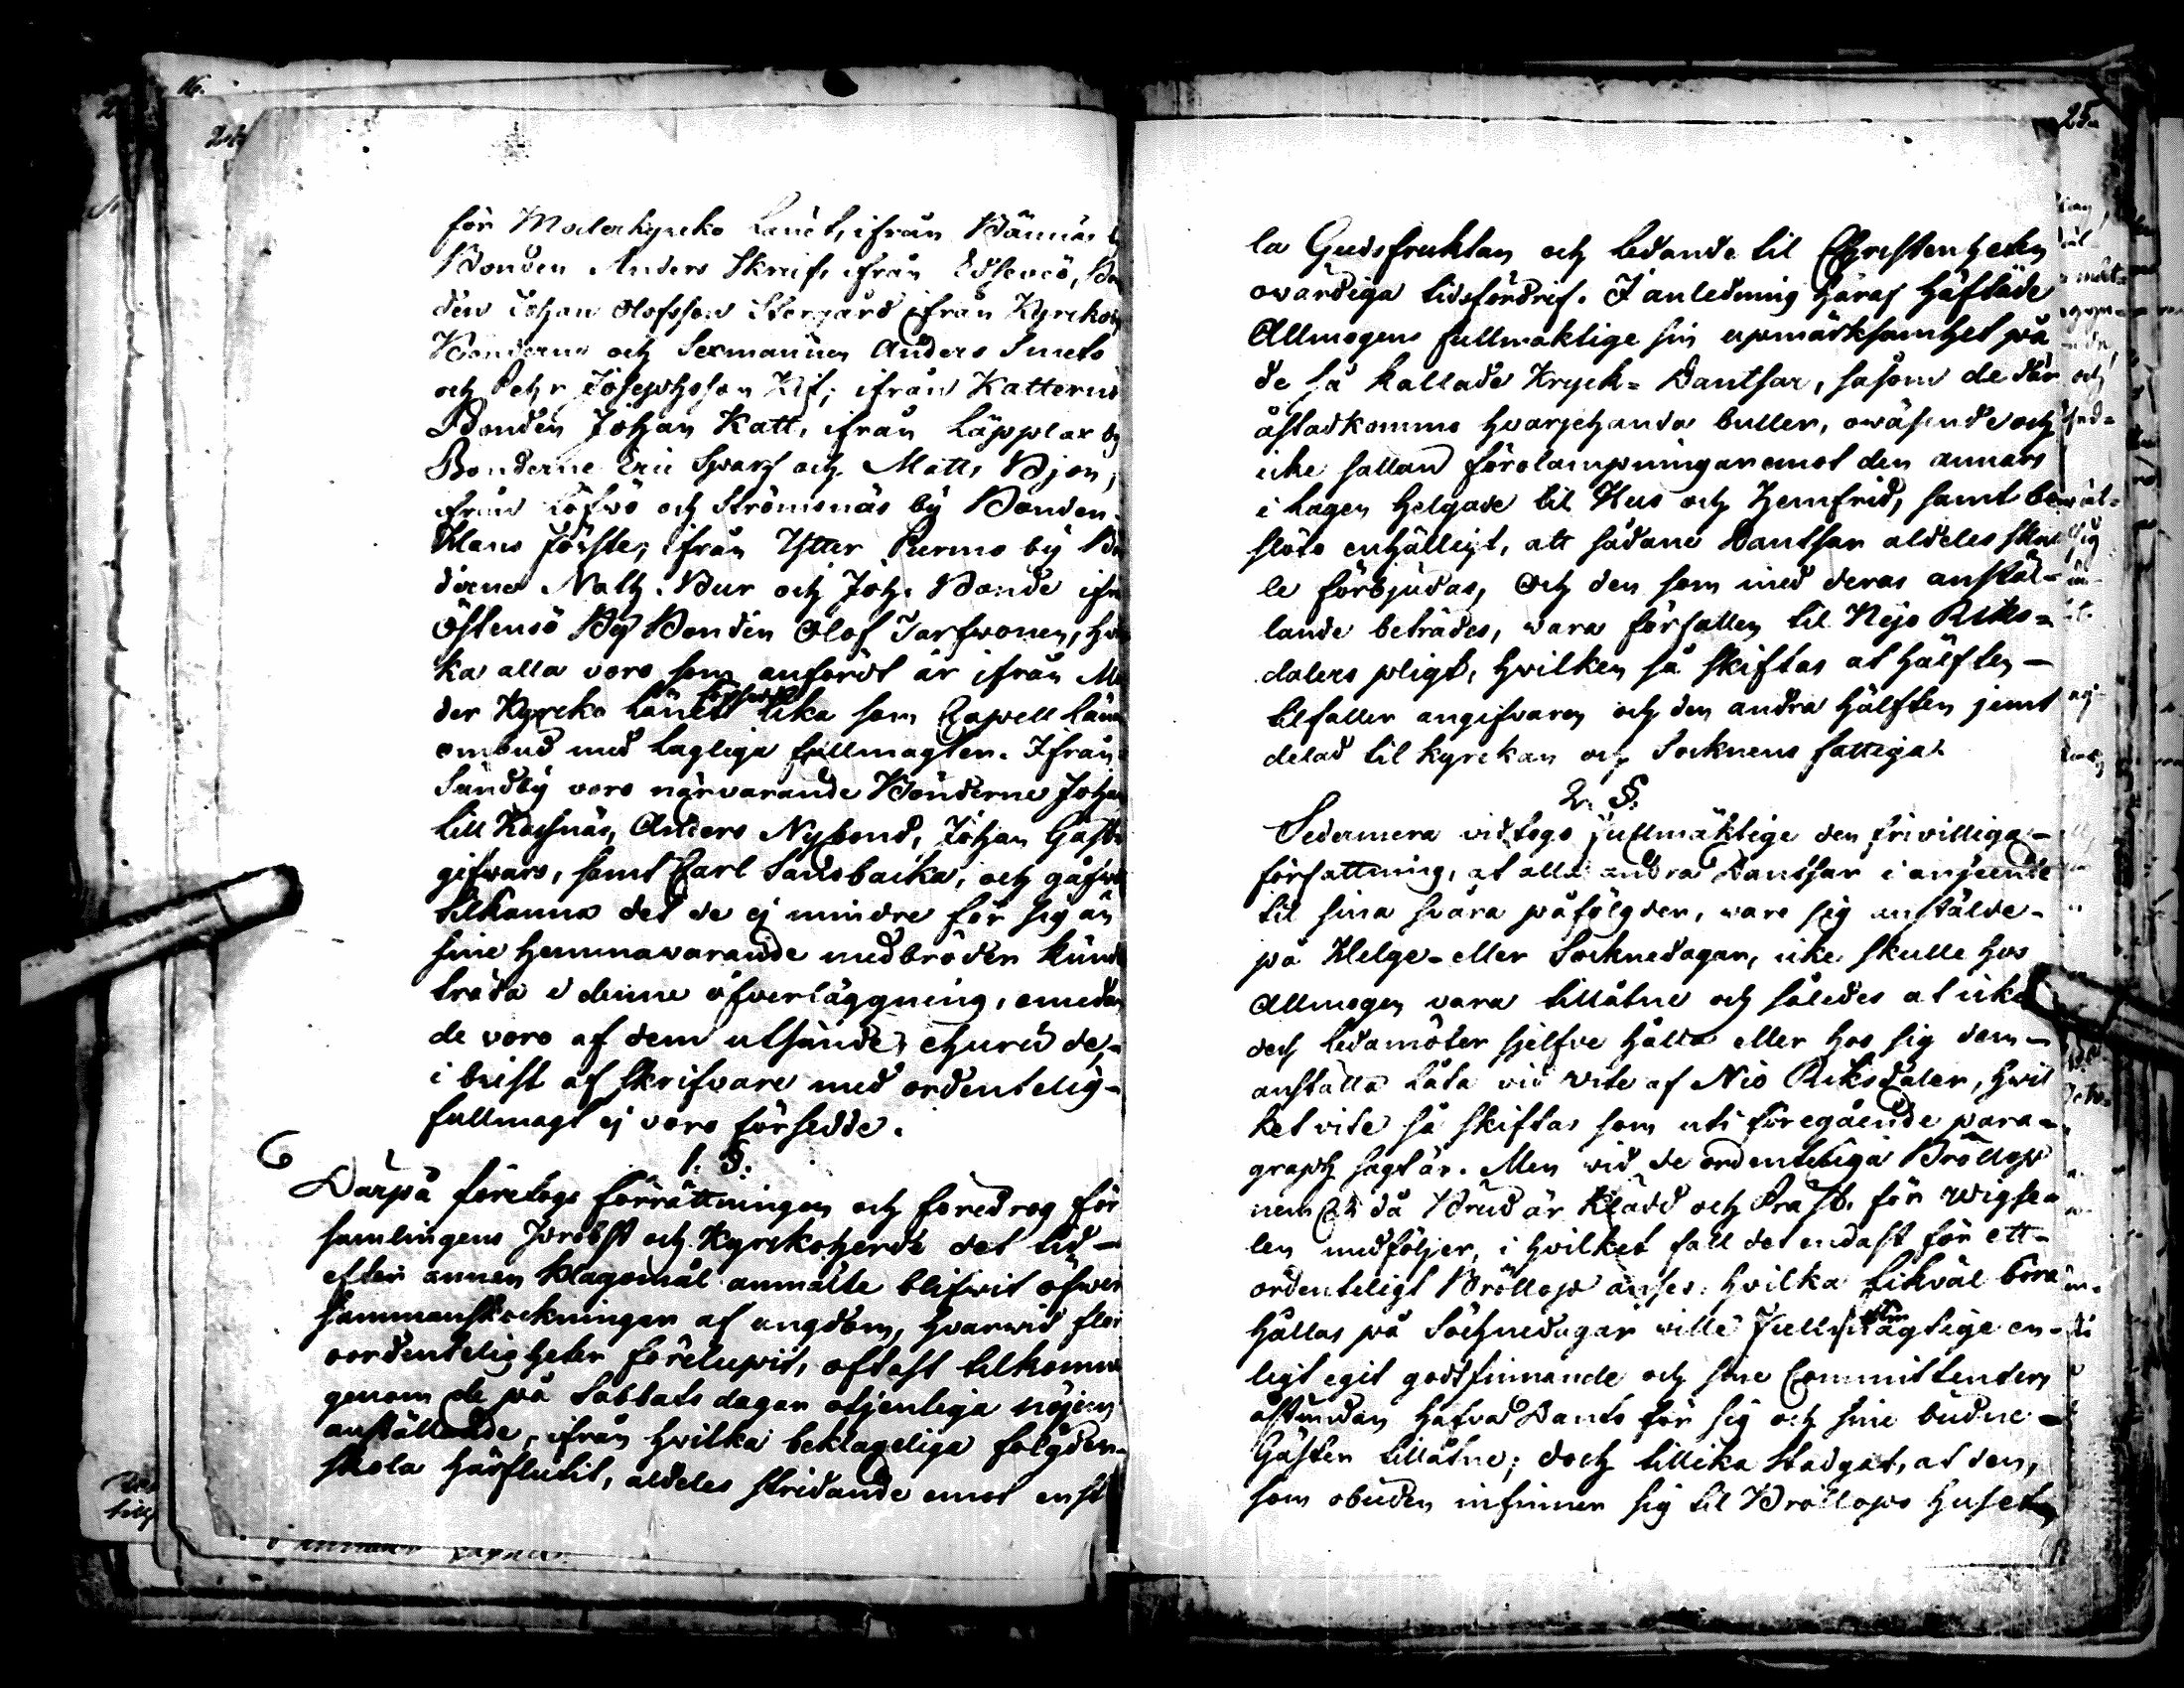 16.
24
för Moderkyrcko Länet, ifrån Bännäs
Bonden Anders Skruf, ifrån Edsevö,
den Johan Olofsson Stergård ifrån Kyrkoby
Bönderne och Sexmannen Anders Smeds
och Pehr Josephsson Kif; ifrån Katternö
Bonden Johan Katt, ifrån Läpplax by
Bonderne Eric Svarf och Matts Bjon,
ifrån Löfvö och Strömsnäs by Bonden
Klas Förste; ifrån Ytter Purmo by
derne Math. Bur och Joh. Bonde
Östensö By Bonden Olof Jarfvonen,
ka alla voro som anfördt är ifrån
der Kyrcko Länet försedde lika som Capell
ombud med lagliga fullmagter. Ifrån
Sundby voro närvarande Bönderne Joh
till Karsnäs, Anders Nybond, Johan Gäst
gifvars, samt Carl Sandbacka, och gåfvo
tilkänna det de ej mindre för sig än
sine hemmavarande medbröder kunde
träda i denne öfverläggning, emedan
de voro af dem utsände, ehuru de,
i brist af skrifvare med ordentelig
fullmagt ej voro försedde.
1. §.
Därpå företogs förrättningen och föredrog för
samlingens Probst och Kyrckoherde det tid
efter annan klagomål anmälte blifvit öfver
sammanskockningar af ungdom, hvarvid fler
oordenteligheter förelupit, oftast tilkomne
genom de på Sabbats dagar otjenliga nöjens
anställande, ifrån hvilka beklageliga fölgder
skola härflutit, aldeles stridande emot
25.
la Gudsfruktan och ledande til Christenheten
ovärdiga tidsfördrif. I anledning häraf häftade
Allmogens fullmäktige sin upmärksamhet på
de så kallade Kryck-Dantsar, såsom de där
åstadkomma hvarjehanda buller, oväsende och
icke sällan förolämpningar emot den annars
i Lagen helgade til Hus och Hemfrid, samt be
slöto enhälligt, att sådane Dantsar aldeles skul
le förbjudas, och den som med deras anstäl-
lande beträdes, vara förfallen til Nijo Riks-
dalers pligt, hvilken så skiftas at hälften
tilfaller angifvaren och den andra hälften jemt
delad til kyrckan och Socknens fattiga.
2. §.
Sedermera vidtogs fullmäktige den frivilliga
författning, at alla andra Dantsar i anseende
til sina svåra påfölgder, vare sig anstälde
på Helge- eller Socknedagar, icke skulle hos
Allmogen vara tillåtne och således at icke
dess Ledamöter sjelfve hålla eller hos sig dem
anställa låta vid vite af Nio Riksdaler, hvil
ket vite så skiftas som uti föregående para-
graph sagt är. Men vid de ordenteliga Bröllop
nem(en) då Brud är klädd och Präst. för wigse-
len medföljer, i hvilket fall det endast för ett
ordenteligt Bröllop anses, hvilka likväl böra
hållas på Söchnedagar ville Fullmägtige en-
ligt egit godtfinnande och sine Committenters
åstundan hafva Dants för sig och sine budne
Gäster tillåtne; doch tillika Stadgat, at den,
som obuden infinner sig til Bröllops huset